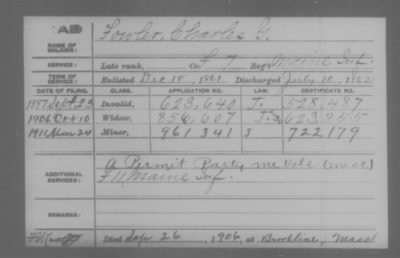 AD
NAME OF SOLDIER: Fowler, Charles G.
SERVICE: Late rank, Co. F, 7 Reg't Maine Inf.
TERM OF SERVICE: Enlisted Dec 18, 1861 Discharged July 10, 1862
DATE OF FILING. CLASS. APPLICATION NO. LAW. CERTIFICATE NO.
1887 Sept 23 Invalid, 623,640 J. 528,487
1906 Oct 10 Widow, 856,607 623,355
1911 Mar 24 Minor, 961 341 S 722179
ADDITIONAL SERVICES: A Permit Party me Vols (misc)
F 11 Maine Inf.
REMARKS:
Died Sep 26, 1906, at Brookline, Mass